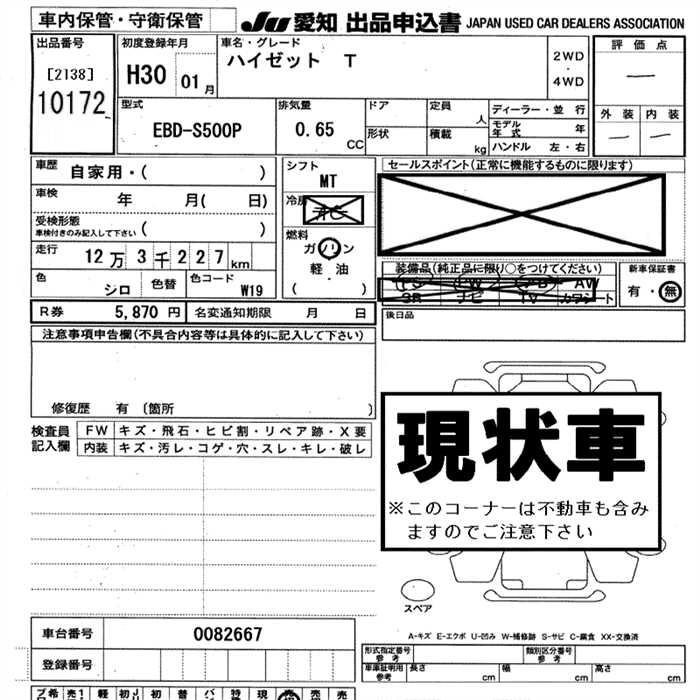 車内保管・守衛保管
JU 愛知 出品申込書 JAPAN USED CAR DEALERS ASSOCIATION
出品番号
[2138]
10172
初度登録年月
H30 01 月
車名・グレード
ハイゼット T
2WD
・
4WD
評価点
—
外装 内装
— —
型式
EBD-S500P
排気量
0.65 CC
ドア
形状
定員 人
積載 kg
ディーラー・並行
モデル年式 年
ハンドル 左・右
車歴 自家用・( )
車検 年 月( 日)
受検形態
車検付きのみ記入して下さい ( )
走行 12万 3千 227 km
色 シロ 色替 色コード W19
シフト
MT
冷房
燃料
ガソリン
・
軽油
( ・ )
セールスポイント(正常に機能するものに限ります)
装備品(純正品に限り○をつけてください)
PS PW AW
SR ナビ TV カワシート
新車保証書
有・無
後日品
R券 5,870 円 名変通知期限 月 日
注意事項申告欄(不具合内容等は具体的に記入して下さい)
修復歴 有 〔箇所 〕
検査員記入欄
FW キズ・飛石・ヒビ割・リペア跡・X要
内装 キズ・汚レ・コゲ・穴・スレ・キレ・破レ
現状車
※このコーナーは不動車も含み
ますのでご注意下さい
スペア
A-キズ E-エクボ U-凹み W-補修跡 S-サビ C-腐食 XX-交換済
車台番号 0082667
登録番号
形式指定番号
参考
類別区分番号
参考
車庫証明用
参考
長さ cm 幅 cm 高さ cm